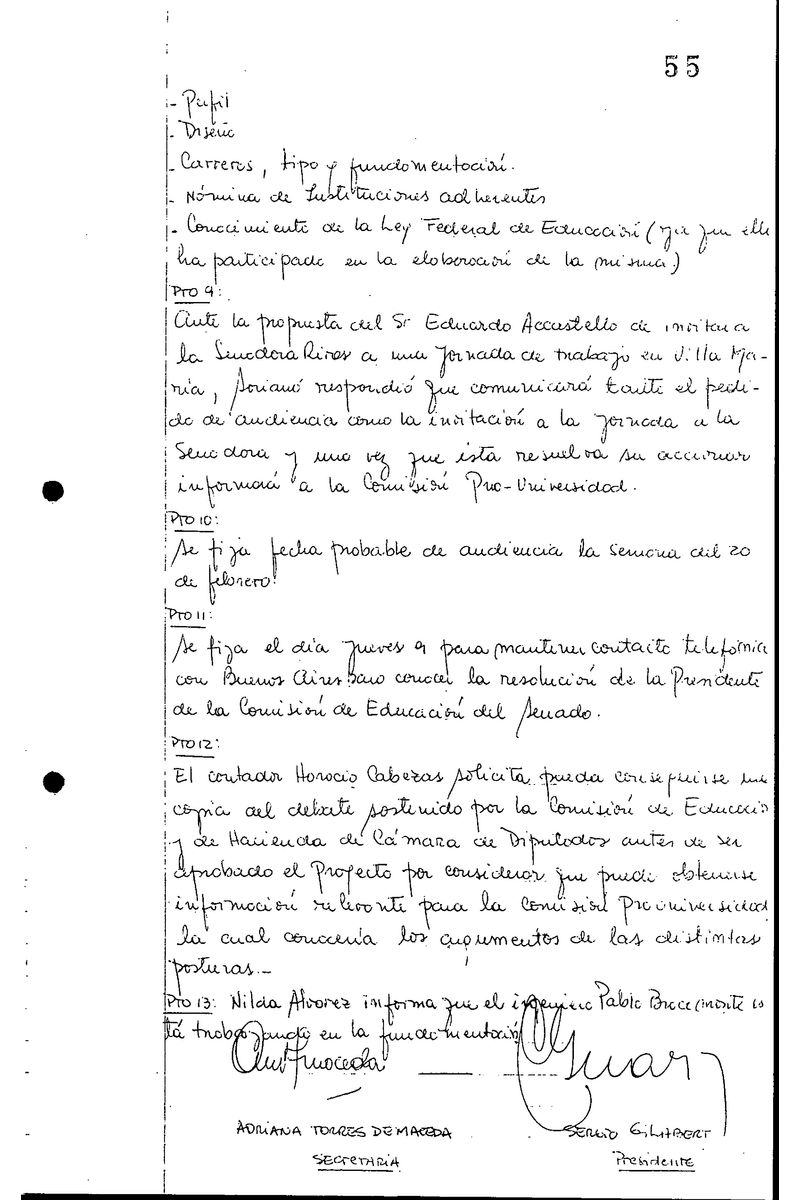 55
- Perfil
- Diseño
- Carreras, tipo y fundamentación.
- Nómina de Instituciones adherentes
- Conocimiento de la Ley Federal de Educación (ya que ella
ha participado en la elaboración de la misma)
Pto 9:
Ante la propuesta del Sr Eduardo Accastello de invitar a
la Senadora Rives a una Jornada de trabajo en Villa Ma-
ría, Soriano respondió que comunicará tanto el pedi-
do de audiencia como la invitación a la Jornada a la
Senadora y una vez que ésta resuelva su accionar
informará a la Comisión Pro-Universidad.
Pto 10:
Se fija fecha probable de audiencia la semana del 20
de febrero.
Pto 11:
Se fija el día jueves 9 para mantener contacto telefónico
con Buenos Aires para conocer la resolución de la Presidente
de la Comisión de Educación del Senado.
Pto 12:
El contador Horacio Cabezas solicita pueda conseguirse una
copia del debate sostenido por la Comisión de Educación
y de Hacienda de Cámara de Diputados antes de ser
aprobado el Proyecto por considerar que puede obtenerse
información relevante para la Comisión Pro universidad
la cual conocería los argumentos de las distintas
posturas.-
Pto 13: Nilda Alvarez informa que el ingeniero Pablo Bracamonte es
tá trabajando en la fundamentación
ADRIANA TORRES DE MACEDA
SERGIO GILABERT
SECRETARIA
Presidente